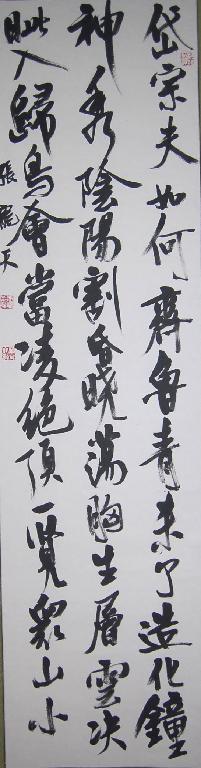 岱宗夫如何齊魯青未了造化鐘
神秀陰陽割昏曉蕩胸生層雲决
眦入歸鳥會當凌絶頂一覽眾山小
張龍天